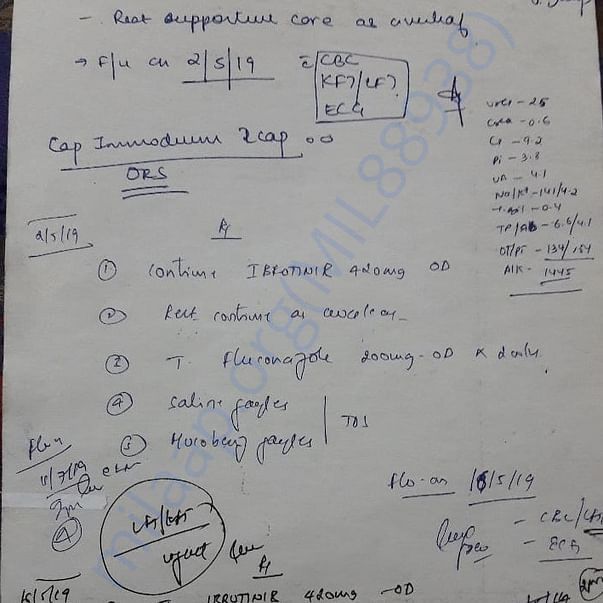 - Rest supportive care as overleaf
→ F/u on 2/5/19 c̄ CBC
KFT/LFT
ECG
Urea - 25
Crea - 0.6
Ca - 9.2
Pi - 3.8
UA - 4.1
Na/K - 141/4.2
- 0.4
TP/Alb - 6.6/4.1
OT/PT - 134/154
Alk - 1445
Cap Immodium 2cap
ORS
2/5/19
Rx
① Continue IBRUTINIB 420mg OD
② Rest continue as overleaf
② T. Fluconazole 200mg - OD x
④ Saline gargles
③ gargles TDS
CBC/
- ECG
LFT/KFT
urgent
Rx
15/5/19 IBRUTINIB 420mg - OD
milaap.org(MIL88938)